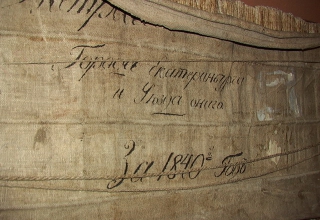 Города Екатеринбурга
и Уезда онаго
За 1840й Годъ